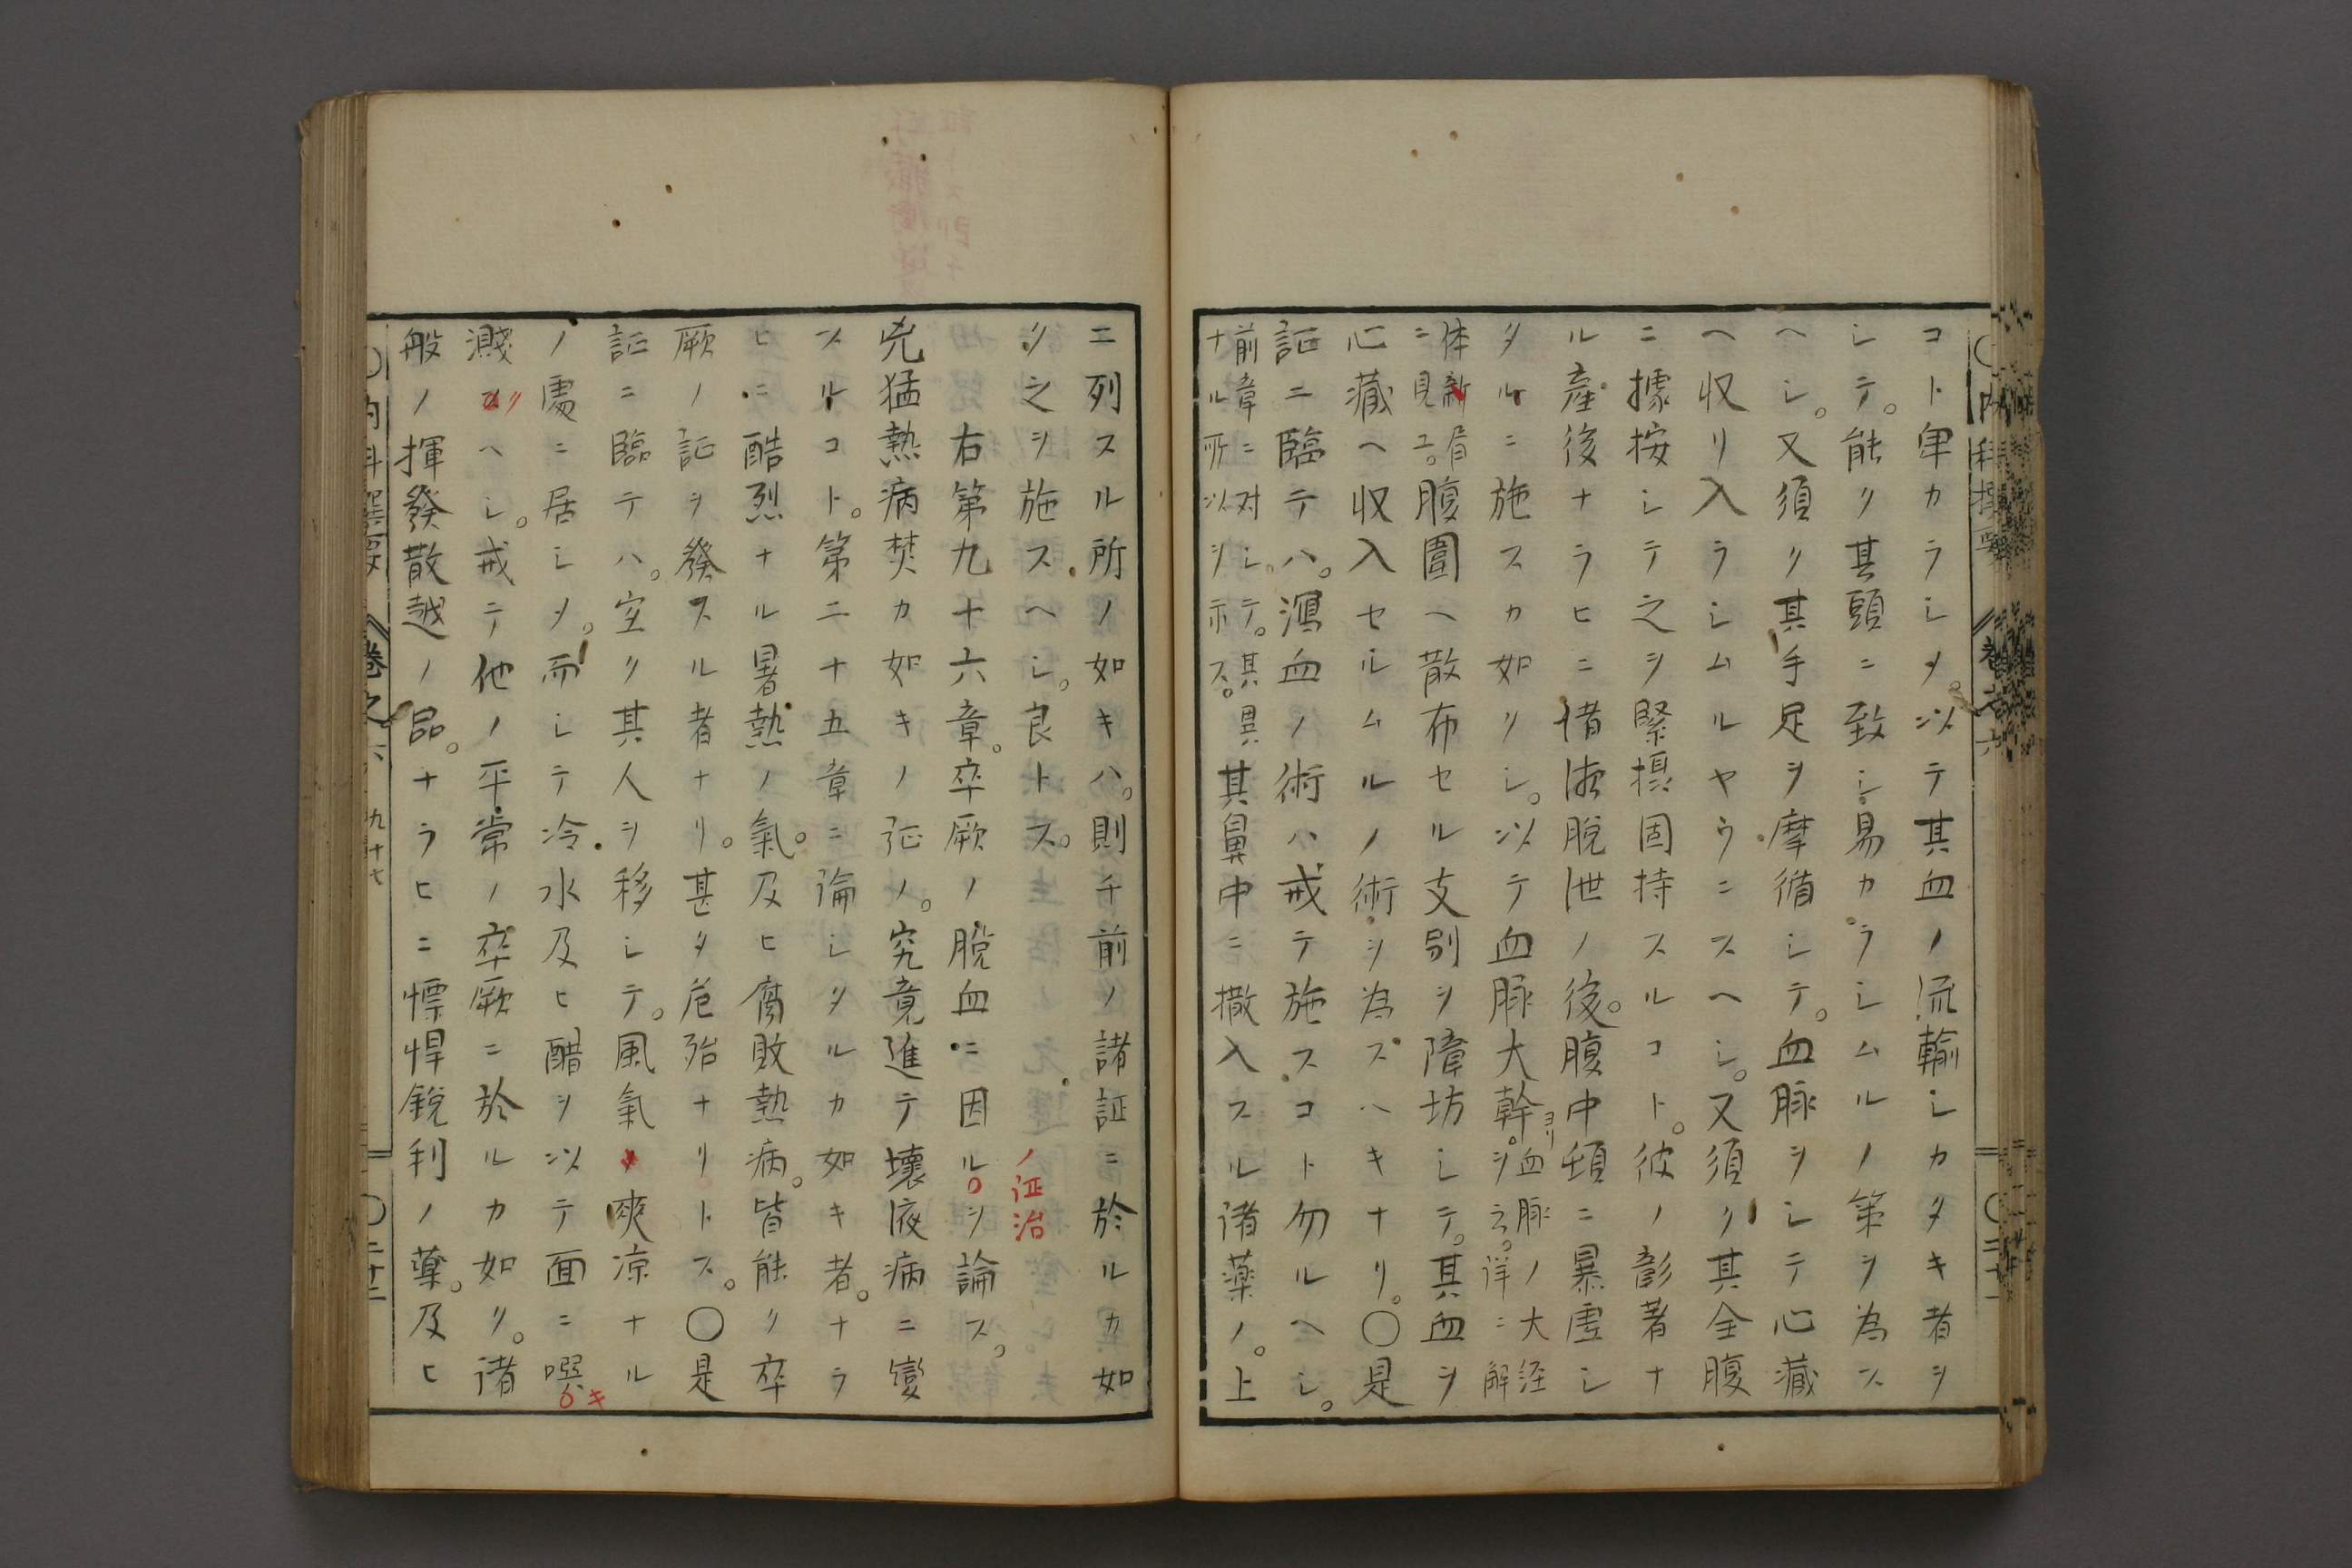 コト牢カラシメ。以テ其血ノ流輸シカタキ者ヲ
シテ。能ク其頭ニ致シ易カラシムルノ策ヲ為ス
ヘシ。又須ク其手足ヲ摩循シテ。血脉ヲシテ心藏
ヘ収リ入ラシムルヤウニスヘシ。又須ク其全腹
ニ據按シテ之ヲ緊摂固持スルコト。彼ノ彰著ナ
ル産後ナラヒニ借液脱泄ノ後。腹中頓ニ暴虚シ
タルニ施スカ如クシ。以テ血脉大幹ヨリ。血脉ノ大経
ヲ云。詳ニ解
体新書
ニ見エ。腹圍ヘ散布セル支別ヲ障坊シテ。其血ヲ
心藏ヘ収入セルムルノ術ヲ為スヘキナリ。〇是
証ニ臨テハ。瀉血ノ術ハ戒テ施スコト勿ルヘシ。
前章ニ対シテ。其異
ナル所以ヲ示ス。其鼻中ニ撒入スル諸薬ノ。上
ニ列スル所ノ如キハ。則チ前ノ諸証ニ於ルカ如
ク之ヲ施スヘシ。良トス。
右第九十六章。卒厥ノ脱血ニ因ルノ証治ヲ論ス。
兇猛熱病焚カ如キノ証ノ。究竟進テ壊液病ニ變
スルコト。第二十五章ニ論シタルカ如キ者。ナラ
ヒニ酷烈ナル暑熱ノ氣。及ヒ腐敗熱病。皆能ク卒
厥ノ証ヲ發スル者ナリ。甚タ危殆ナリトス。〇是
証ニ臨テハ。室ク其人ヲ移シテ。風氣爽凉ナル
ノ處ニ居シメ。而シテ冷水及ヒ醋ヲ以テ面ニ噀キ
濺クヘシ。戒テ他ノ平常ノ卒厥ニ於ルカ如ク。諸
般ノ揮發散越ノ品。ナラヒニ慓悍鋭利ノ薬。及ヒ
〇内科撰要
卷之六
九十七